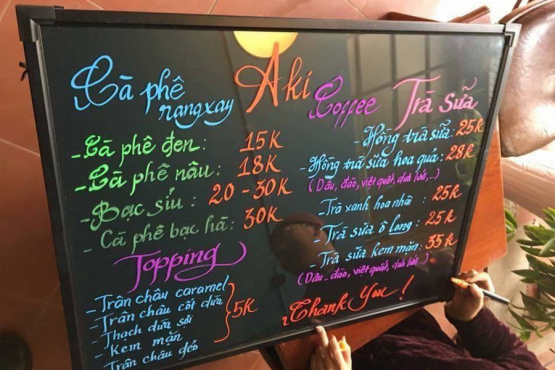 Cà phê rang xay
Aki Coffee
- Cà phê đen: 15K
- Cà phê nâu: 18K
- Bạc sỉu: 20 - 30K
- Cà phê bạc hà: 30K
Topping
- Trân châu caramel
- Trân châu cốt dừa
- Thạch dừa sợi
- Kem mặn
- Trân châu dẻo
5K
Trà sữa
- Hồng trà sữa: 25K
- Hồng trà sữa hoa quả: 28K
(Dâu, đào, việt quất, dưa lưới,..)
- Trà xanh hoa nhài: 25K
- Trà sữa ô long: 25K
- Trà sữa kem mặn: 35K
(Dâu, đào, việt quất, dưa lưới,..)
Thank You!